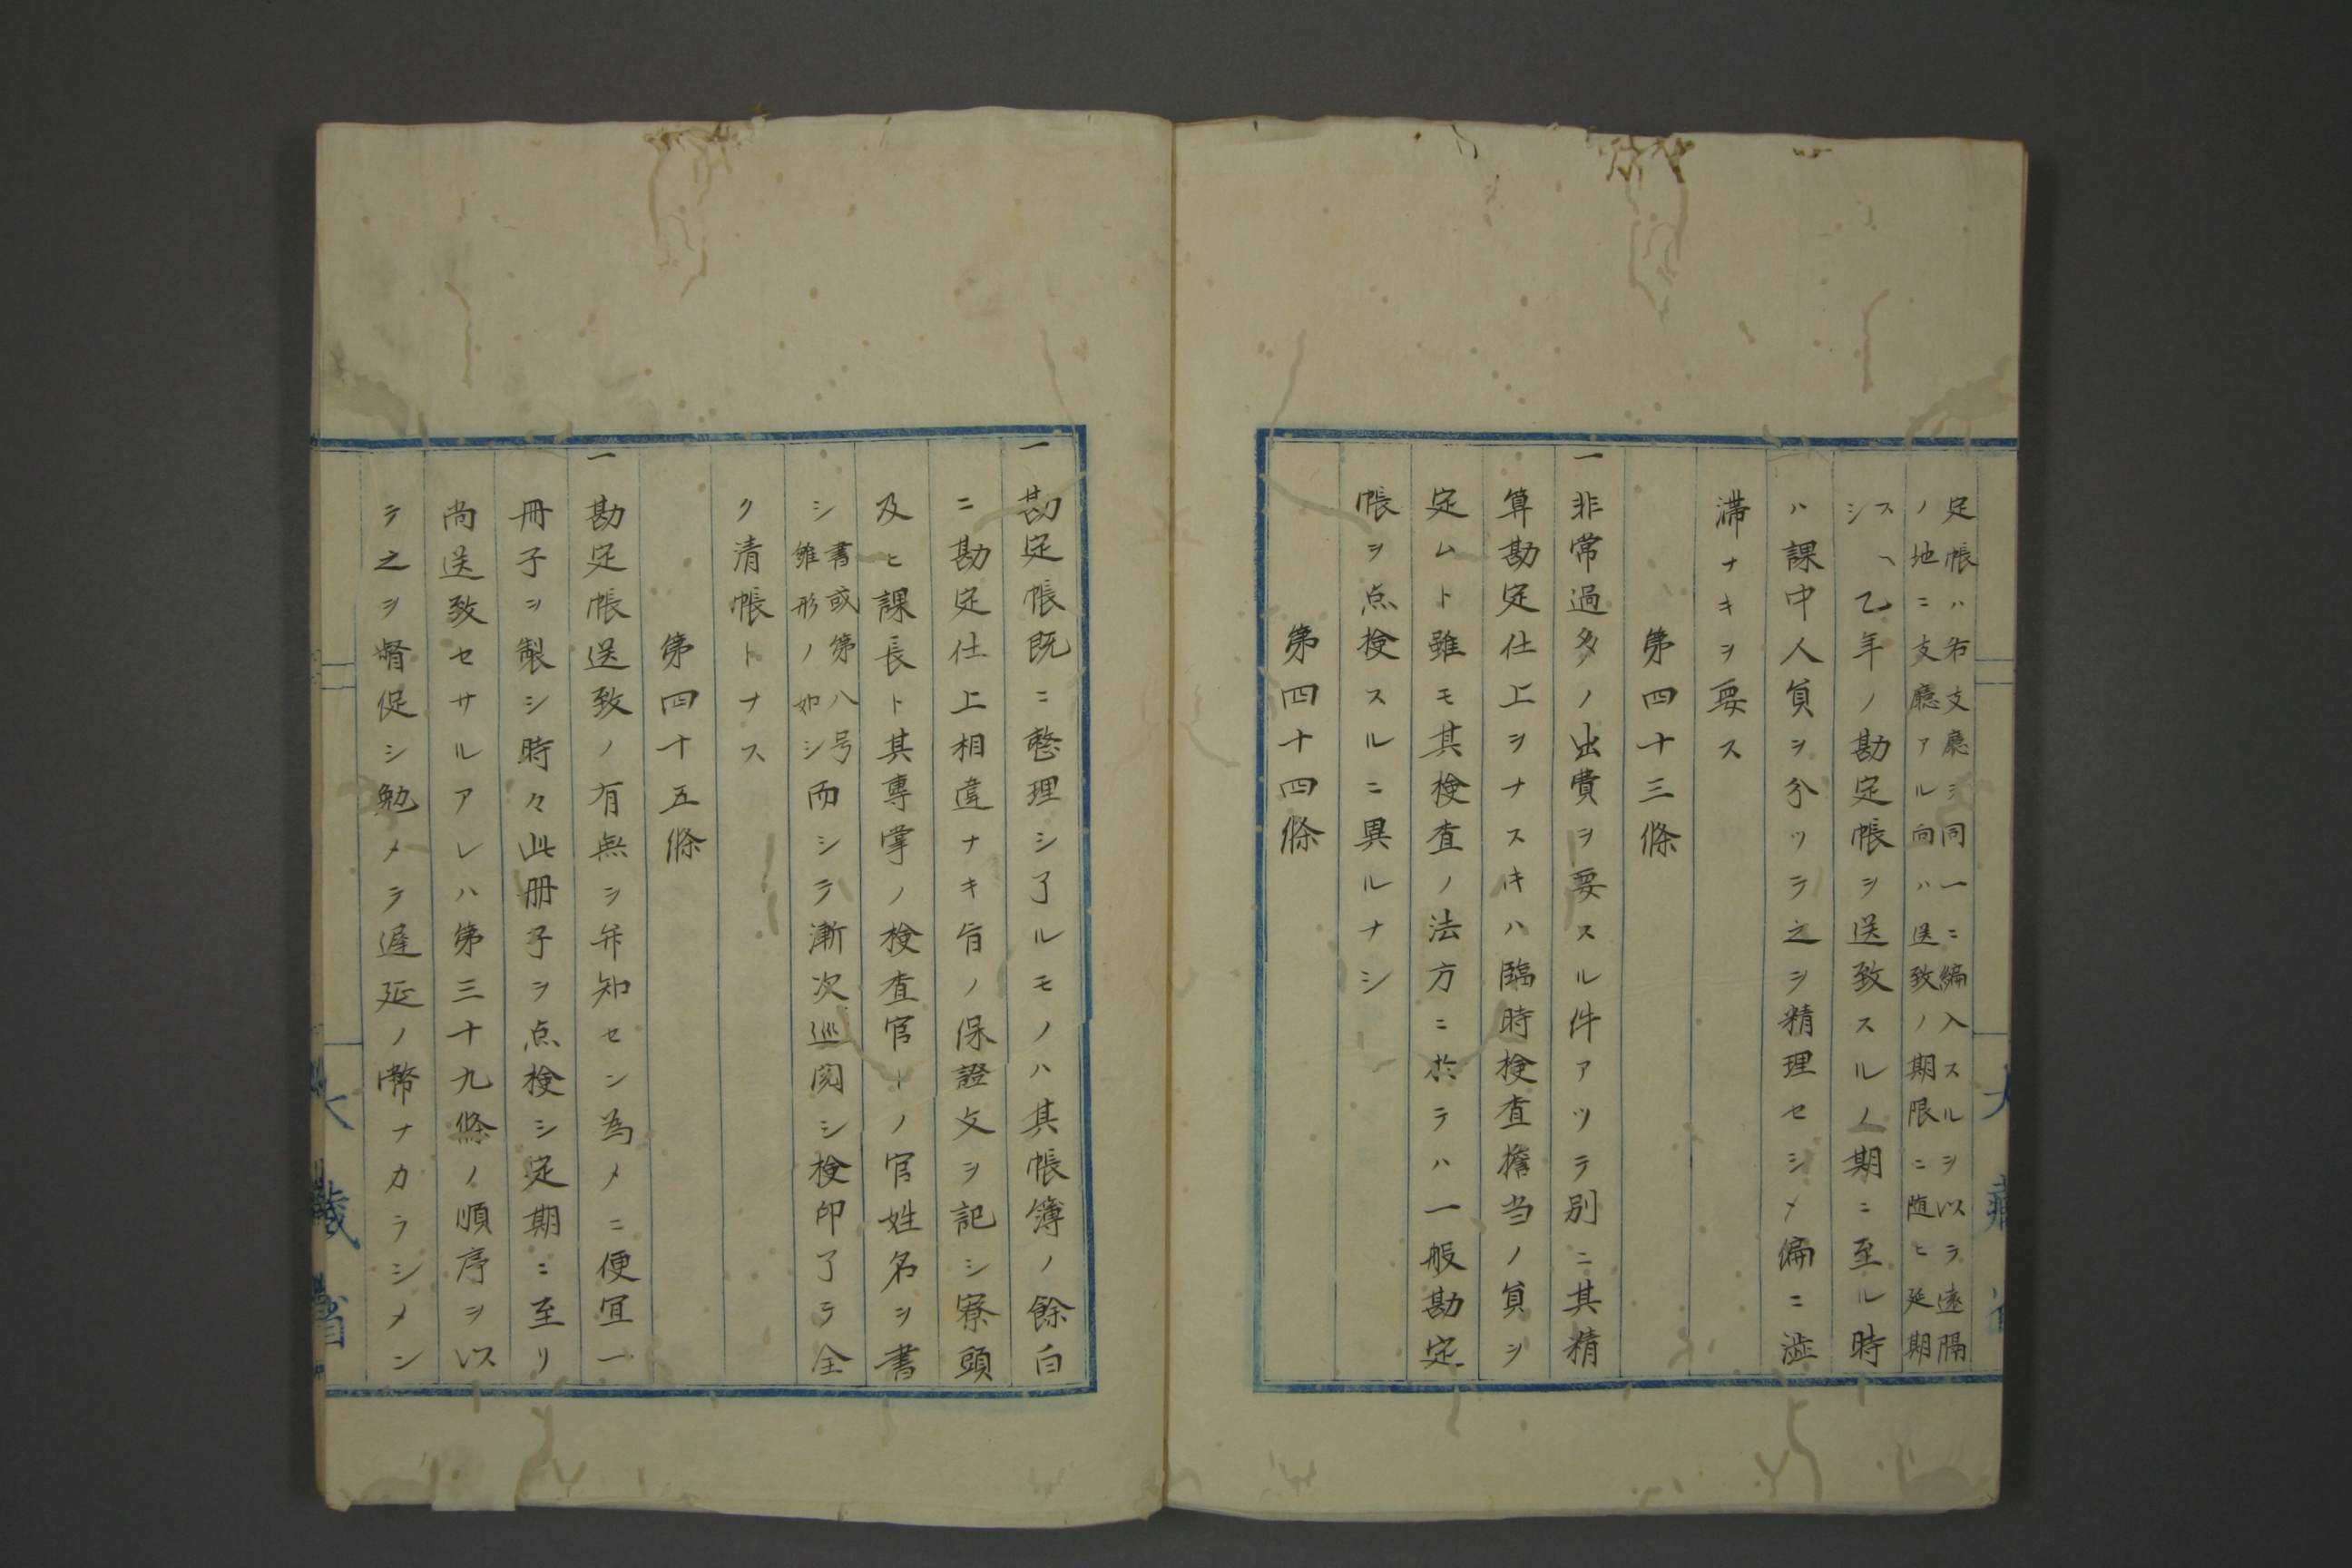 定帳ハ右支廳ヨ同一ニ編入スルヲ以テ遠隔
ノ地ニ支廳アル向ハ送致ノ期限ニ随ヒ延期
ス
シ、乙年ノ勘定帳ヲ送致スルノ期ニ至ル時
ハ課中人員ヲ分ツテ之ヲ精理セシメ偏ニ澁
滞ナキヲ要ス
第四十三條
一非常過多ノ出費ヲ要スル件アツテ別ニ其精
算勘定仕上ヲナスキハ臨時検査擔当ノ員ヲ
定ムト雖モ其検査ノ法方ニ於テハ一般勘定
帳ヲ点検スルニ異ルナシ
第四十四條
一勘定帳既ニ整理シ了ルモノハ其帳簿ノ餘白
ニ勘定仕上相違ナキ旨ノ保證文ヲ記シ寮頭
及ヒ課長ト其專掌ノ検査官トノ官姓名ヲ書
シ
書或第八号
雛形ノ如シ
而シテ漸次巡閲シ検印了テ全
ク清帳トナス
第四十五條
一勘定帳送致ノ有無ヲ弁知セン為メニ便宜一
冊子ヲ製シ時々此冊子ヲ点検シ定期ニ至リ
尚送致セサルアレハ第三十九條ノ順序ヲ以
テ之ヲ督促シ勉メテ遅延ノ弊ナカラシメン
大藏省